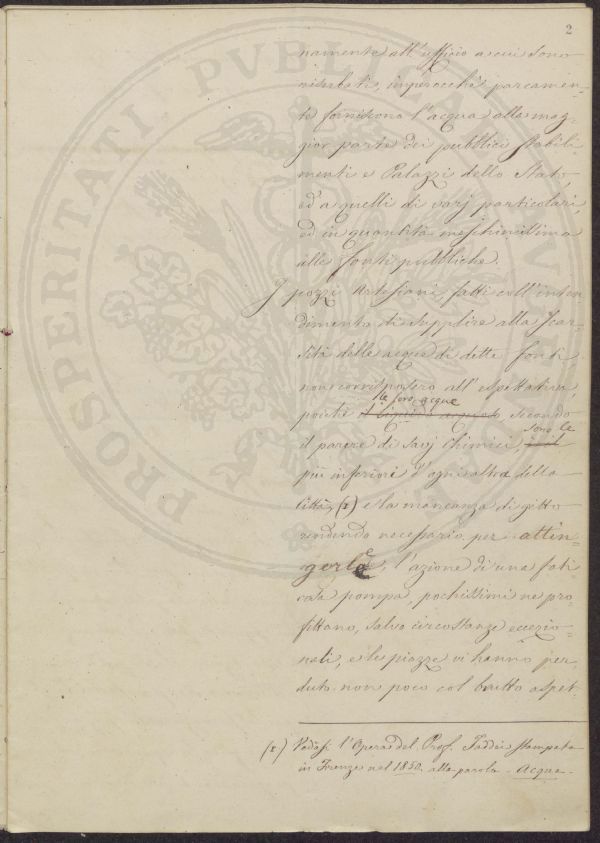 2
namente all'uffizio a cui sono
ridotti, imperocchè parcamen-
te forniscono l'acqua alla mag-
gior parte dei pubblici stabili-
menti e Palazzi dello Stato,
ed a quelli di varj particolari,
ed in quantità meschinissima
alle fonti pubbliche.
I pozzi Artesiani, fatti coll'inten
dimento di supplire alla scar-
sità delle acque di dette fonti
non corrisposero all'espettativa,
le loro acque
poichè il liquido acqueo secondo
sono le
il parere di savj Chimici,
più inferiori d'ogni altra della
città, (1) e la mancanza di gitto
rendendo necessario per attin-
gerle, l'azione di una fati
cosa pompa, pochissimi ne pro-
fittano, salvo circostanze eccezio-
nali, e le piazze vi hanno per
duto non poco col brutto aspet-
(1) Vedasi l'Opera del Prof. Taddei stampata
in Firenze nel 1850. alla parola - Acqua -
PROSPERITATI PVBLICAE